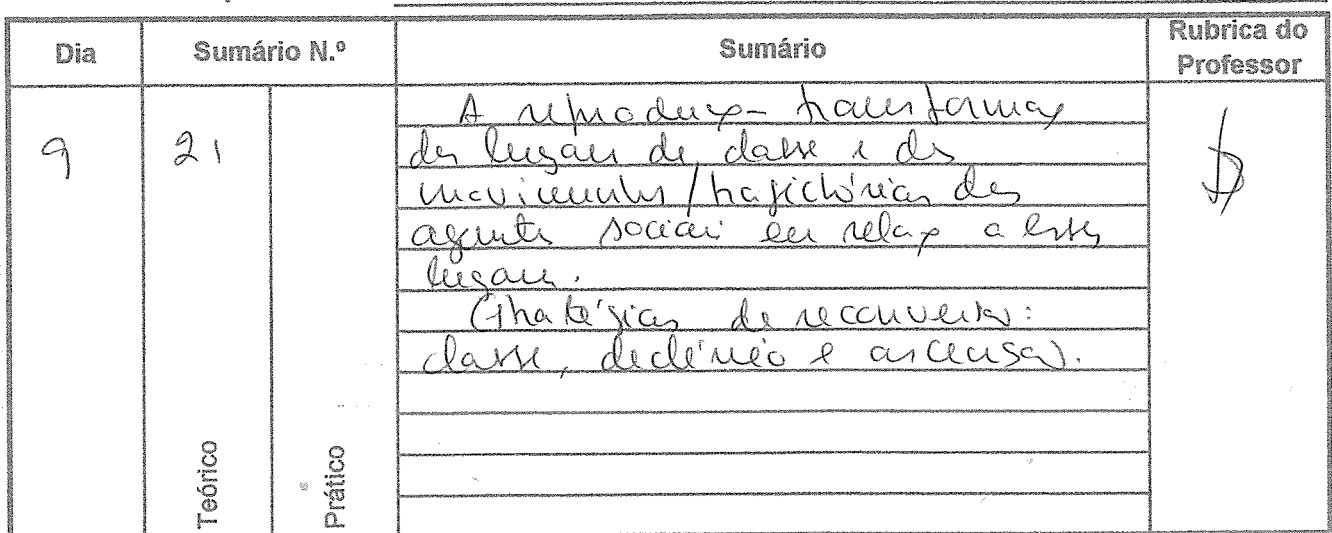 Dia Sumário N.º Sumário Rubrica do Professor
9 21
A reprodução-transformação
dos lugares de classe e dos
movimentos/trajectórias dos
agentes sociais em relação a esses
lugares.
Estratégias de reconversão:
classe, declínio e ascensão.
Teórico
Prático